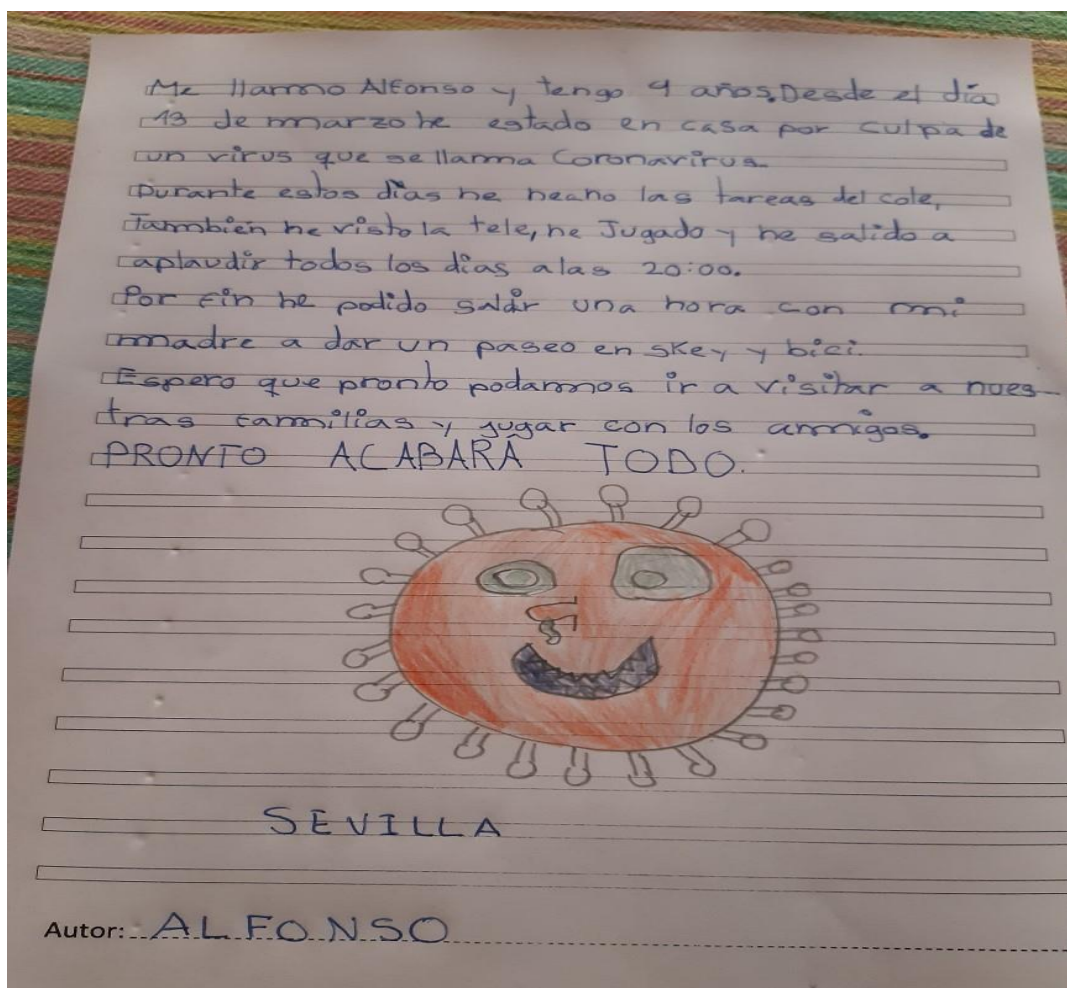 Me llammo Alfonso y tengo 9 años. Desde el día
13 de marzo he estado en casa por culpa de
un virus que se llama Coronavirus.
Durante estos días he hecho las tareas del cole,
También he visto la tele, he Jugado y he salido a
aplaudir todos los días a las 20:00.
Por fin he podido salir una hora con mi
madre a dar un paseo en skey y bici.
Espero que pronto podamos ir a visitar a nues-
tras familias y jugar con los amigos.
PRONTO ACABARÁ TODO.
SEVILLA
Autor: ALFONSO